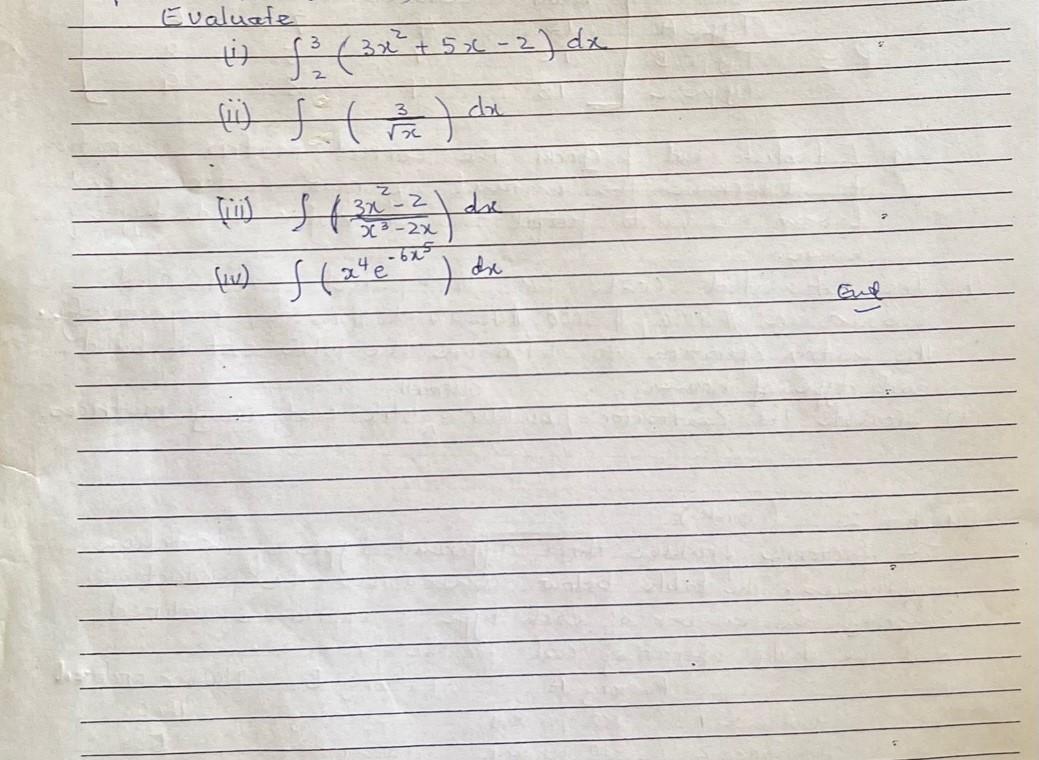 Evaluate
(i) ∫₂³ (3x² + 5x - 2) dx
(ii) ∫ (3/√x) dx
(iii) ∫ ((3x² - 2)/(x³ - 2x)) dx
(iv) ∫ (x⁴e^(-6x⁵)) dx
End